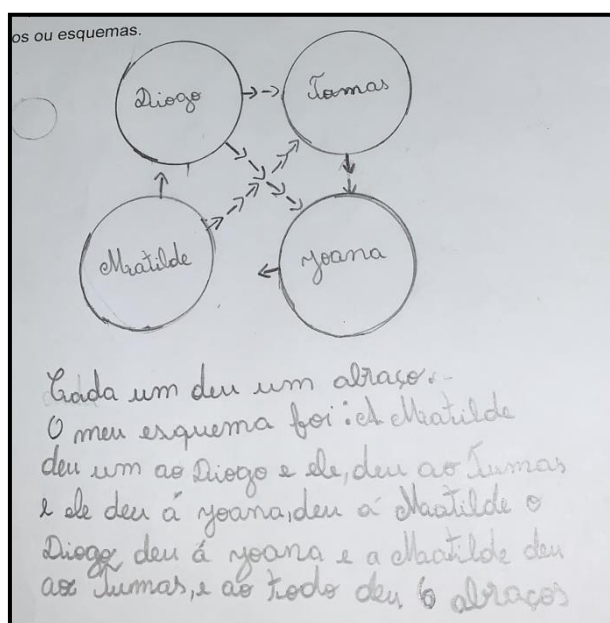 os ou esquemas.
Diogo
Tomas
Matilde
Joana
Cada um deu um abraço.
O meu esquema foi: A Matilde
deu um ao Diogo e ele, deu ao Tumas
e ele deu á Joana, deu á Matilde o
Diogo deu á Joana e a Matilde deu
ao Tumas, e ao todo deu 6 abraços